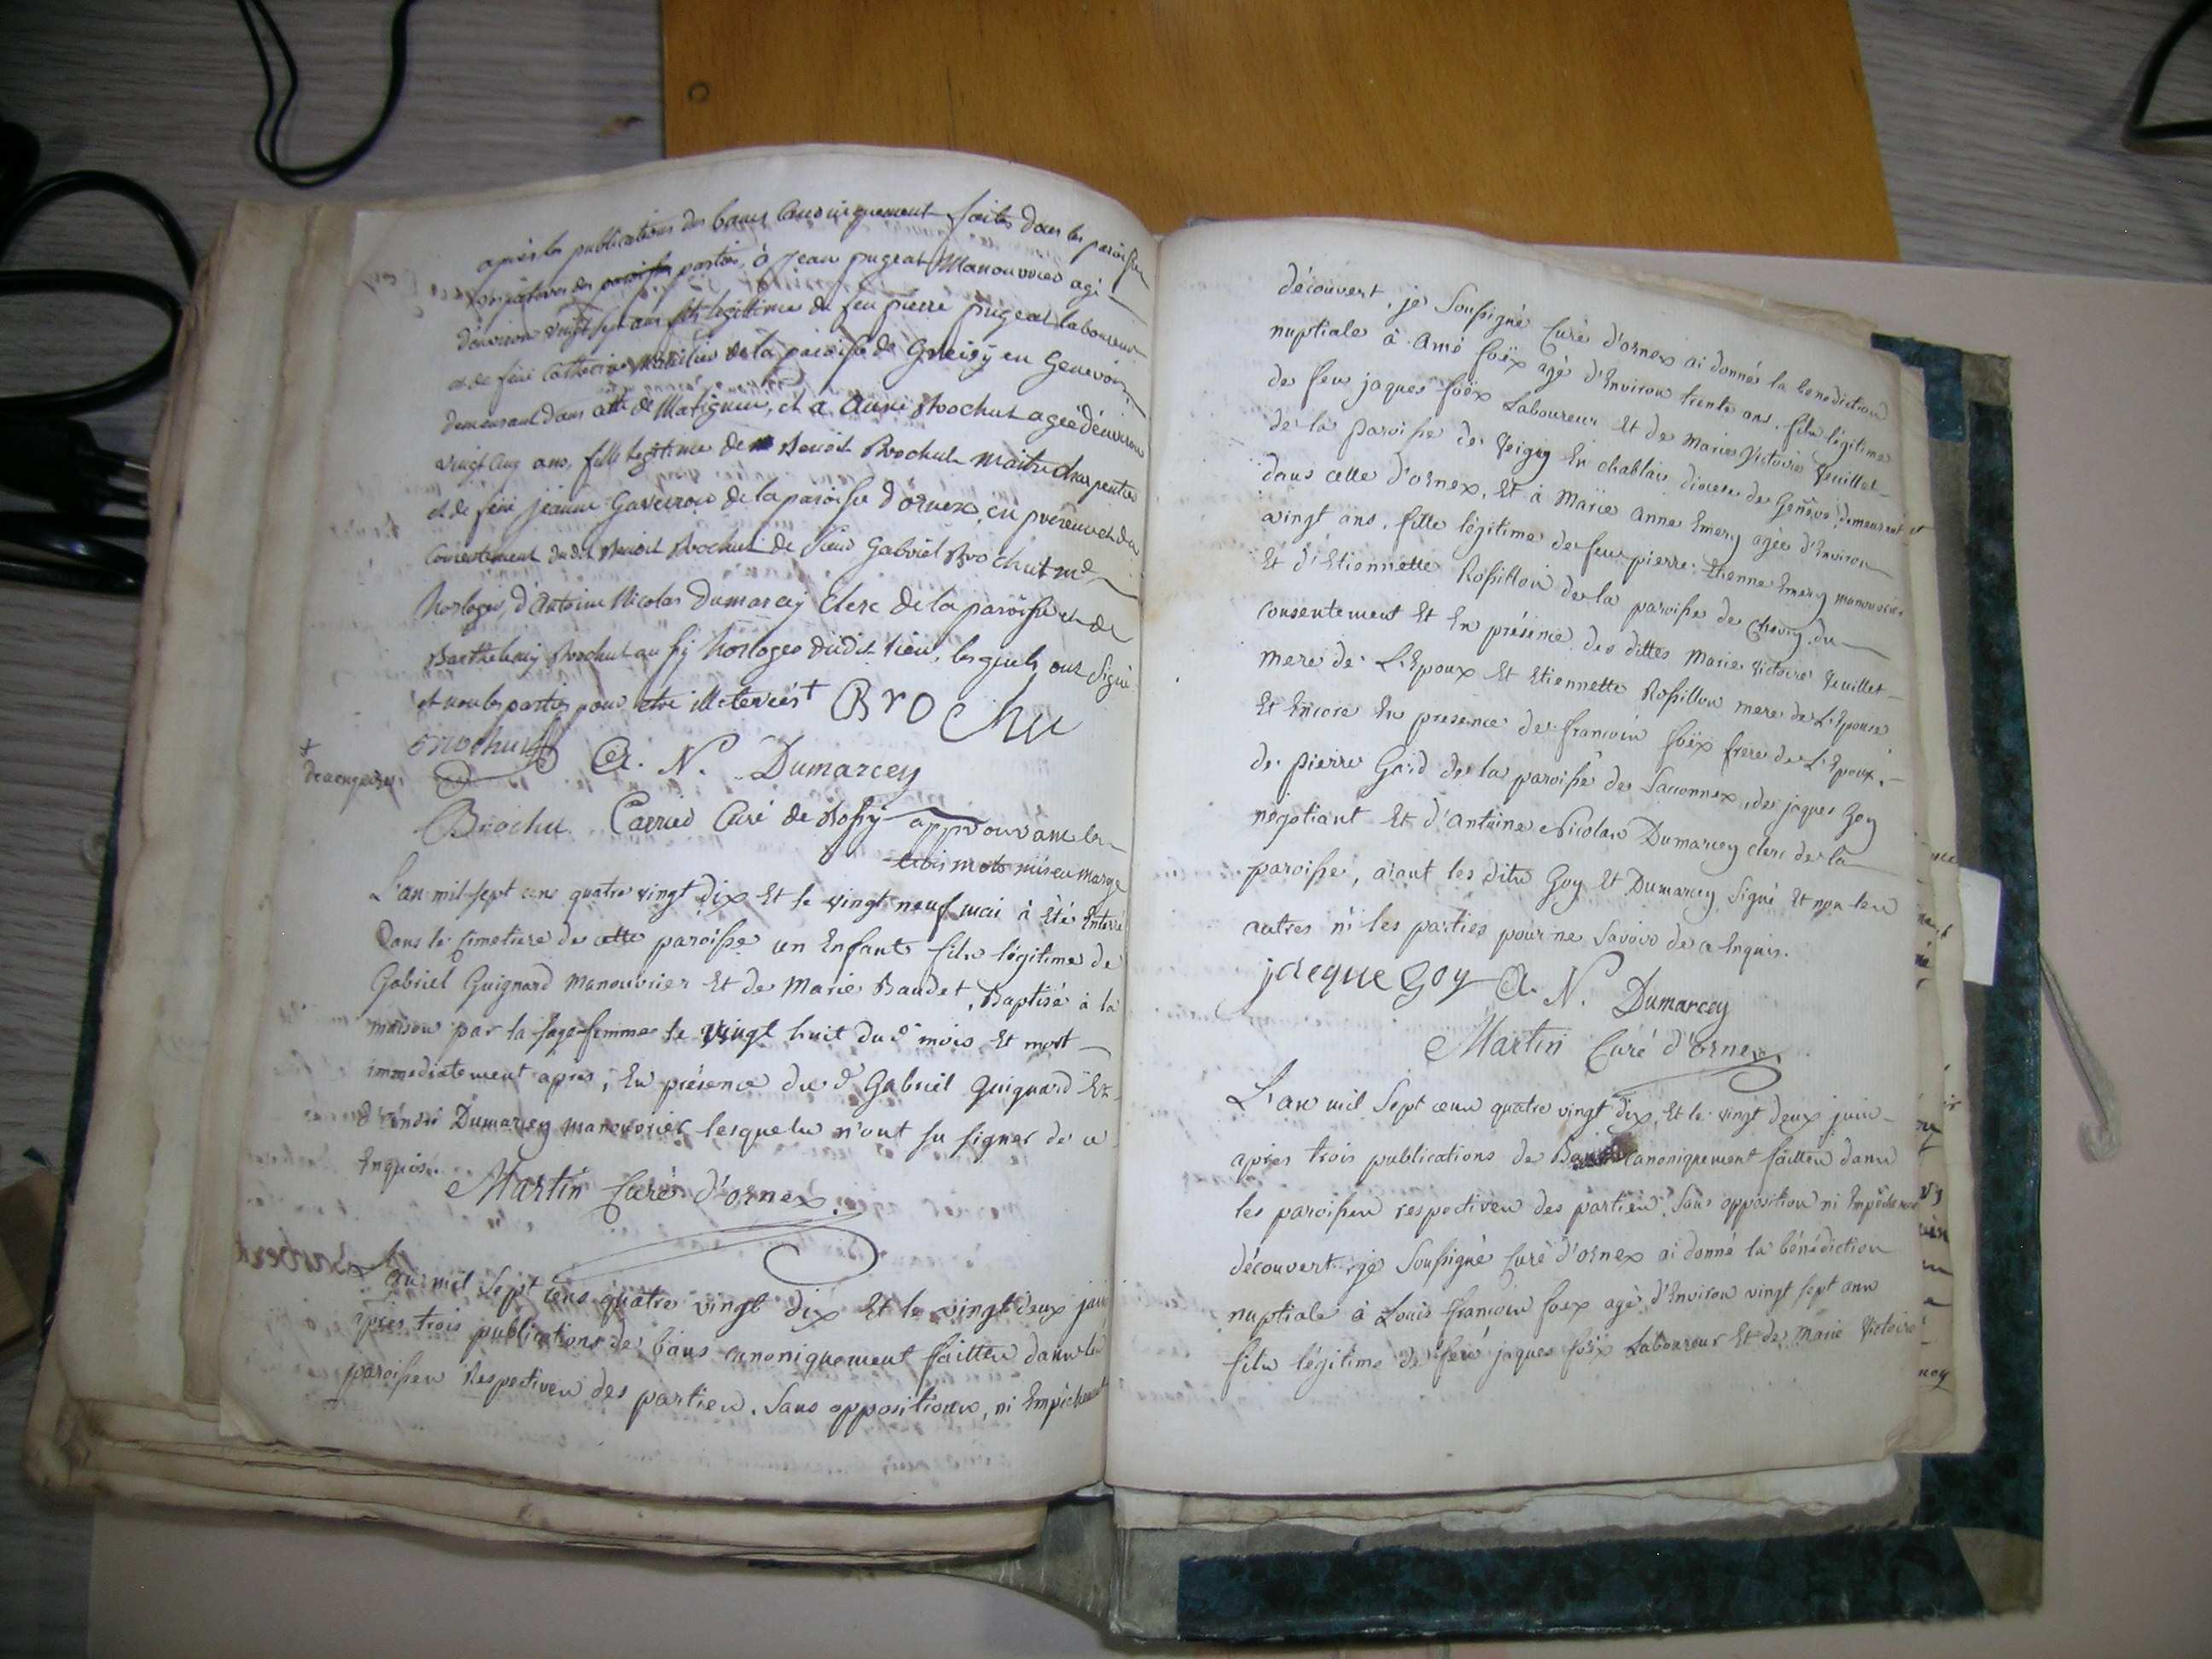 après les publications des bancs Canoniquement faites dans les paroisses
respectives des paroisses parties, à Jean pugeat Manouvrier agé
d'environ vingt sept ans fils légitime de feu pierre pugeat laboureur
et de feüe Catherine de la paroisse de en Genevois
demeurant dans celle de Matignin, et a Anne Brochut agée d'environ
vingt cinq ans, fille legitime de Benoit Brochut maitre charpentier
et de feüe jeanne de la paroisse d'ornex, en présence et du
Consentement dudit Benoit Brochut de Sieur Gabriel Brochut md
horloger, d'Antoine Nicolas Dumarcey Clerc de la paroisse et de
Barthelemy Brochut au horloger dudit lieu, lesquels ont signé
et non les parties pour etre illeterées + Brochu
Brochut A. N. Dumarcey
+
de a enquises
Brochu Carrier Curé de approuvant les
trois mots mis en marge
L'an mil sept cens quatre vingt dix Et le vingt neuf mai à Eté Enterré
Dans le Cimetiere de cette paroisse un Enfant fils légitime de
Gabriel Guignard Manouvrier Et de Marie Baudet, Baptisé à la
maison par la sage-femme le vingt huit dud. mois Et mort
immediatement apres, En présence du d. Gabriel Guignard Et
d'André Dumarcey manouvrier lesquels n'ont su signer de ce
Enquis.
Martin Curé d'ornex
L'an mil Sept cens quatre vingt dix Et le vingt deux juin
après trois publications de bans canoniquement faittes dans les
paroisses Respectives des parties, Sans oppositions, ni Empêchement
découvert, je Soussigné Curé d'ornex ai donné la benediction
nuptiale à Amé foëx agé d'Environ trente ans, fils légitime
de feu jaques foëx Laboureur Et de Marie Victoire Veuillet
de la paroisse de Veigy En chablais diocese de Genève, demeurant
dans celle d'ornex, Et à Marie Anne Emery agée d'Environ
vingt ans, fille légitime de feu pierre Etienne Emery manouvrier
Et d'Etiennette Rossillon de la paroisse de Chevry, du
consentement Et En présence des dittes Marie Victoire Veuillet
mere de L'Epoux Et Etiennette Rossillon mere de L'Epouse
Et Encore En presence de francois foëx frere de L'Epoux,
de pierre de la paroisse de Saconnex, de jaques Goy
négotiant Et d'Antoine Nicolas Dumarcey clerc de la
paroisse, aïant les dits Goy Et Dumarcey Signé Et non les
autres ni les parties pour ne Savoir de ce Enquis.
jacque Goy A. N. Dumarcey
Martin Curé d'ornex
L'an mil Sept cens quatre vingt dix, Et le vingt deux juin
apres trois publications de Bans canoniquement faittes dans
les paroisses respectives des parties, Sans opposition ni Empêchement
découvert, je Soussigné Curé d'ornex ai donné la bénédiction
nuptiale à Louis francois foëx agé d'Environ vingt sept ans
fils légitime de feu jaques foëx Laboureur Et de Marie Victoire